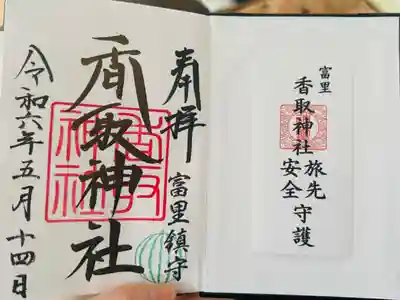 富里
香取神社
旅先
安全
守護
奉拝
富里鎮守
香取神社
令和六年五月十四日